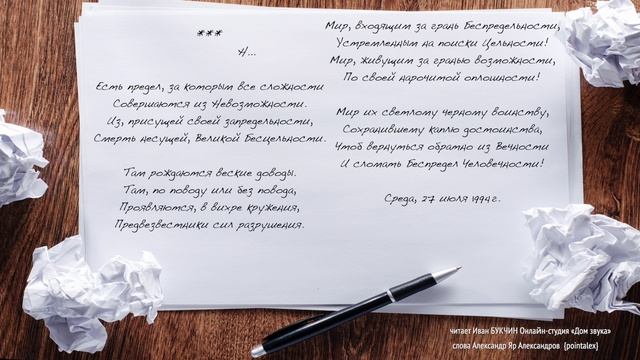 ***
Н...
Есть предел, за которым все сложности
Совершаются из Невозможности.
Из, присущей своей запредельности,
Смерть несущей, Великой Бесцельности.
Там рождаются веские доводы.
Там, по поводу или без повода,
Проявляются, в вихре кружения,
Предвезвестники сил разрушения.
Мир, входящим за грань Беспредельности,
Устремленным на поиски Цельности!
Мир, живущим за гранью возможности,
По своей нарочитой оплошности!
Мир их светлому черному воинству,
Сохранившему каплю достоинства,
Чтоб вернуться обратно из Вечности
И сломать Беспредел Человечности!
Среда, 27 июля 1994 г.
читает Иван БУКЧИН Онлайн-студия «Дом звука»
слова Александр Яр Александров {pointalex}